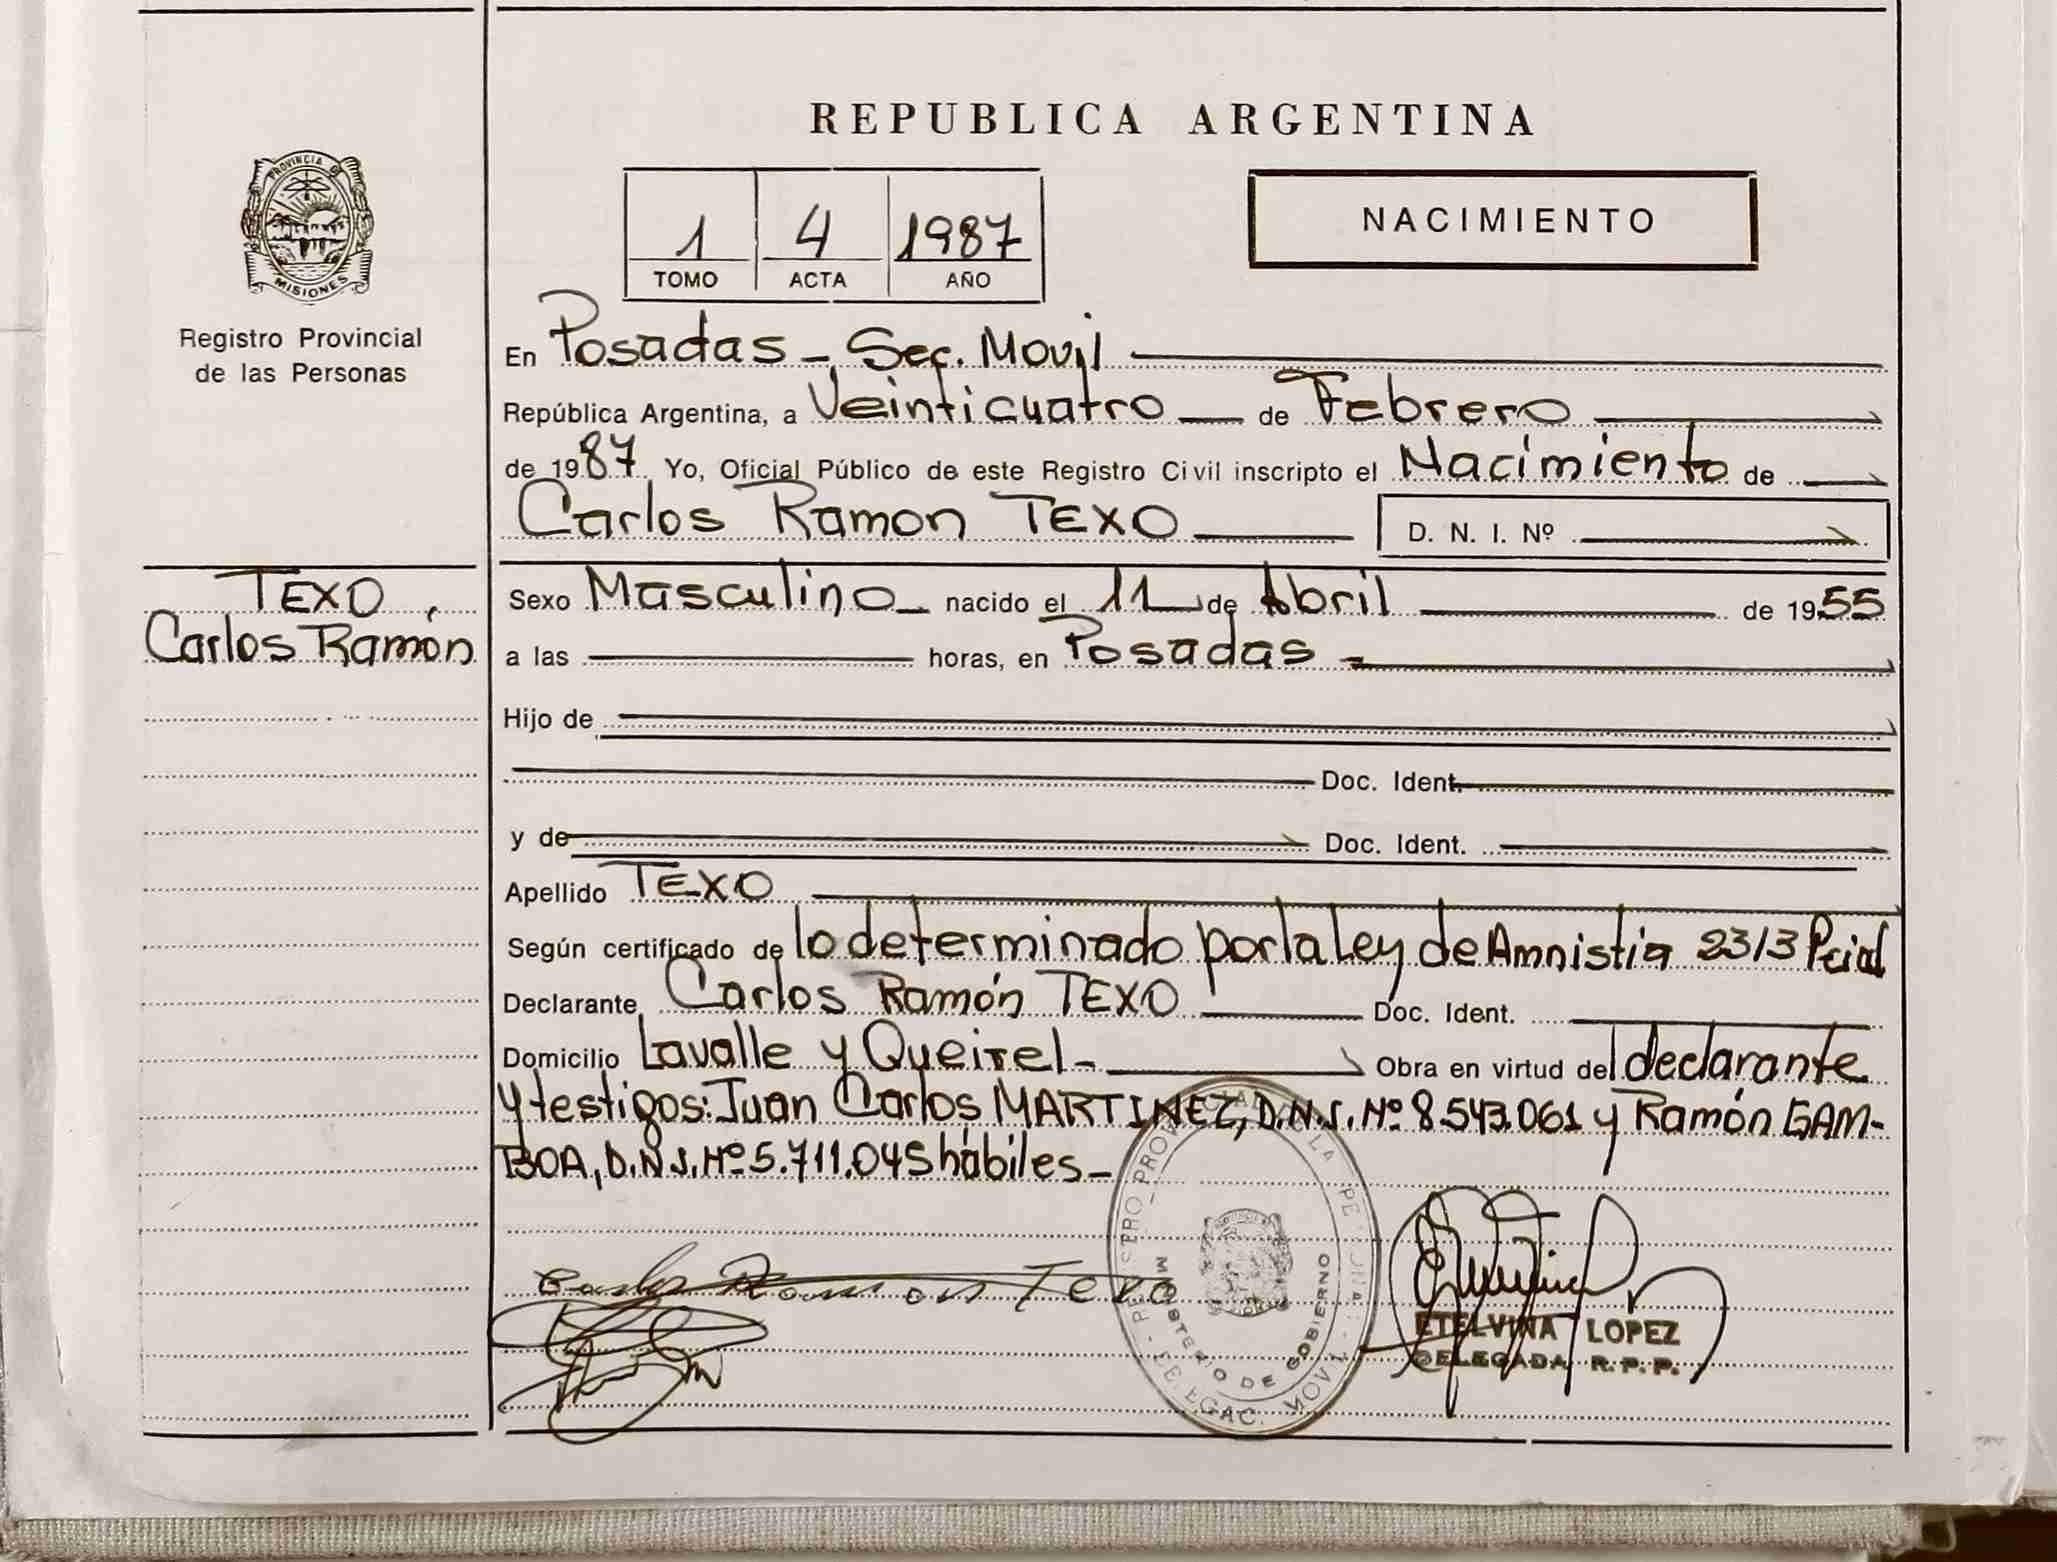 REPUBLICA ARGENTINA
PROVINCIA DE
MISIONES
Registro Provincial
de las Personas
1 4 1987
TOMO ACTA AÑO
NACIMIENTO
En Posadas - Sec. Movil
República Argentina, a Veinticuatro de Febrero
de 1987 Yo, Oficial Público de este Registro Civil inscripto el Nacimiento de
Carlos Ramon TEXO D. N. I. Nº
TEXO,
Carlos Ramón
Sexo Masculino nacido el 11 de Abril de 1955
a las horas, en Posadas -
Hijo de
Doc. Ident.
y de Doc. Ident.
Apellido TEXO
Según certificado de lo determinado por la Ley de Amnistia 2313 Pcial
Declarante Carlos Ramón TEXO Doc. Ident.
Domicilio Lavalle y Queirel - Obra en virtud del declarante
y testigos: Juan Carlos MARTINEZ, D.N.I. Nº 8.543.061 y Ramón GAM-
BOA, D.N.I. Nº 5.711.045 hábiles -
Carlos Ramon Texo
MINISTERIO DE GOBIERNO
ETELVINA LOPEZ
DELEGADA R. P. P.